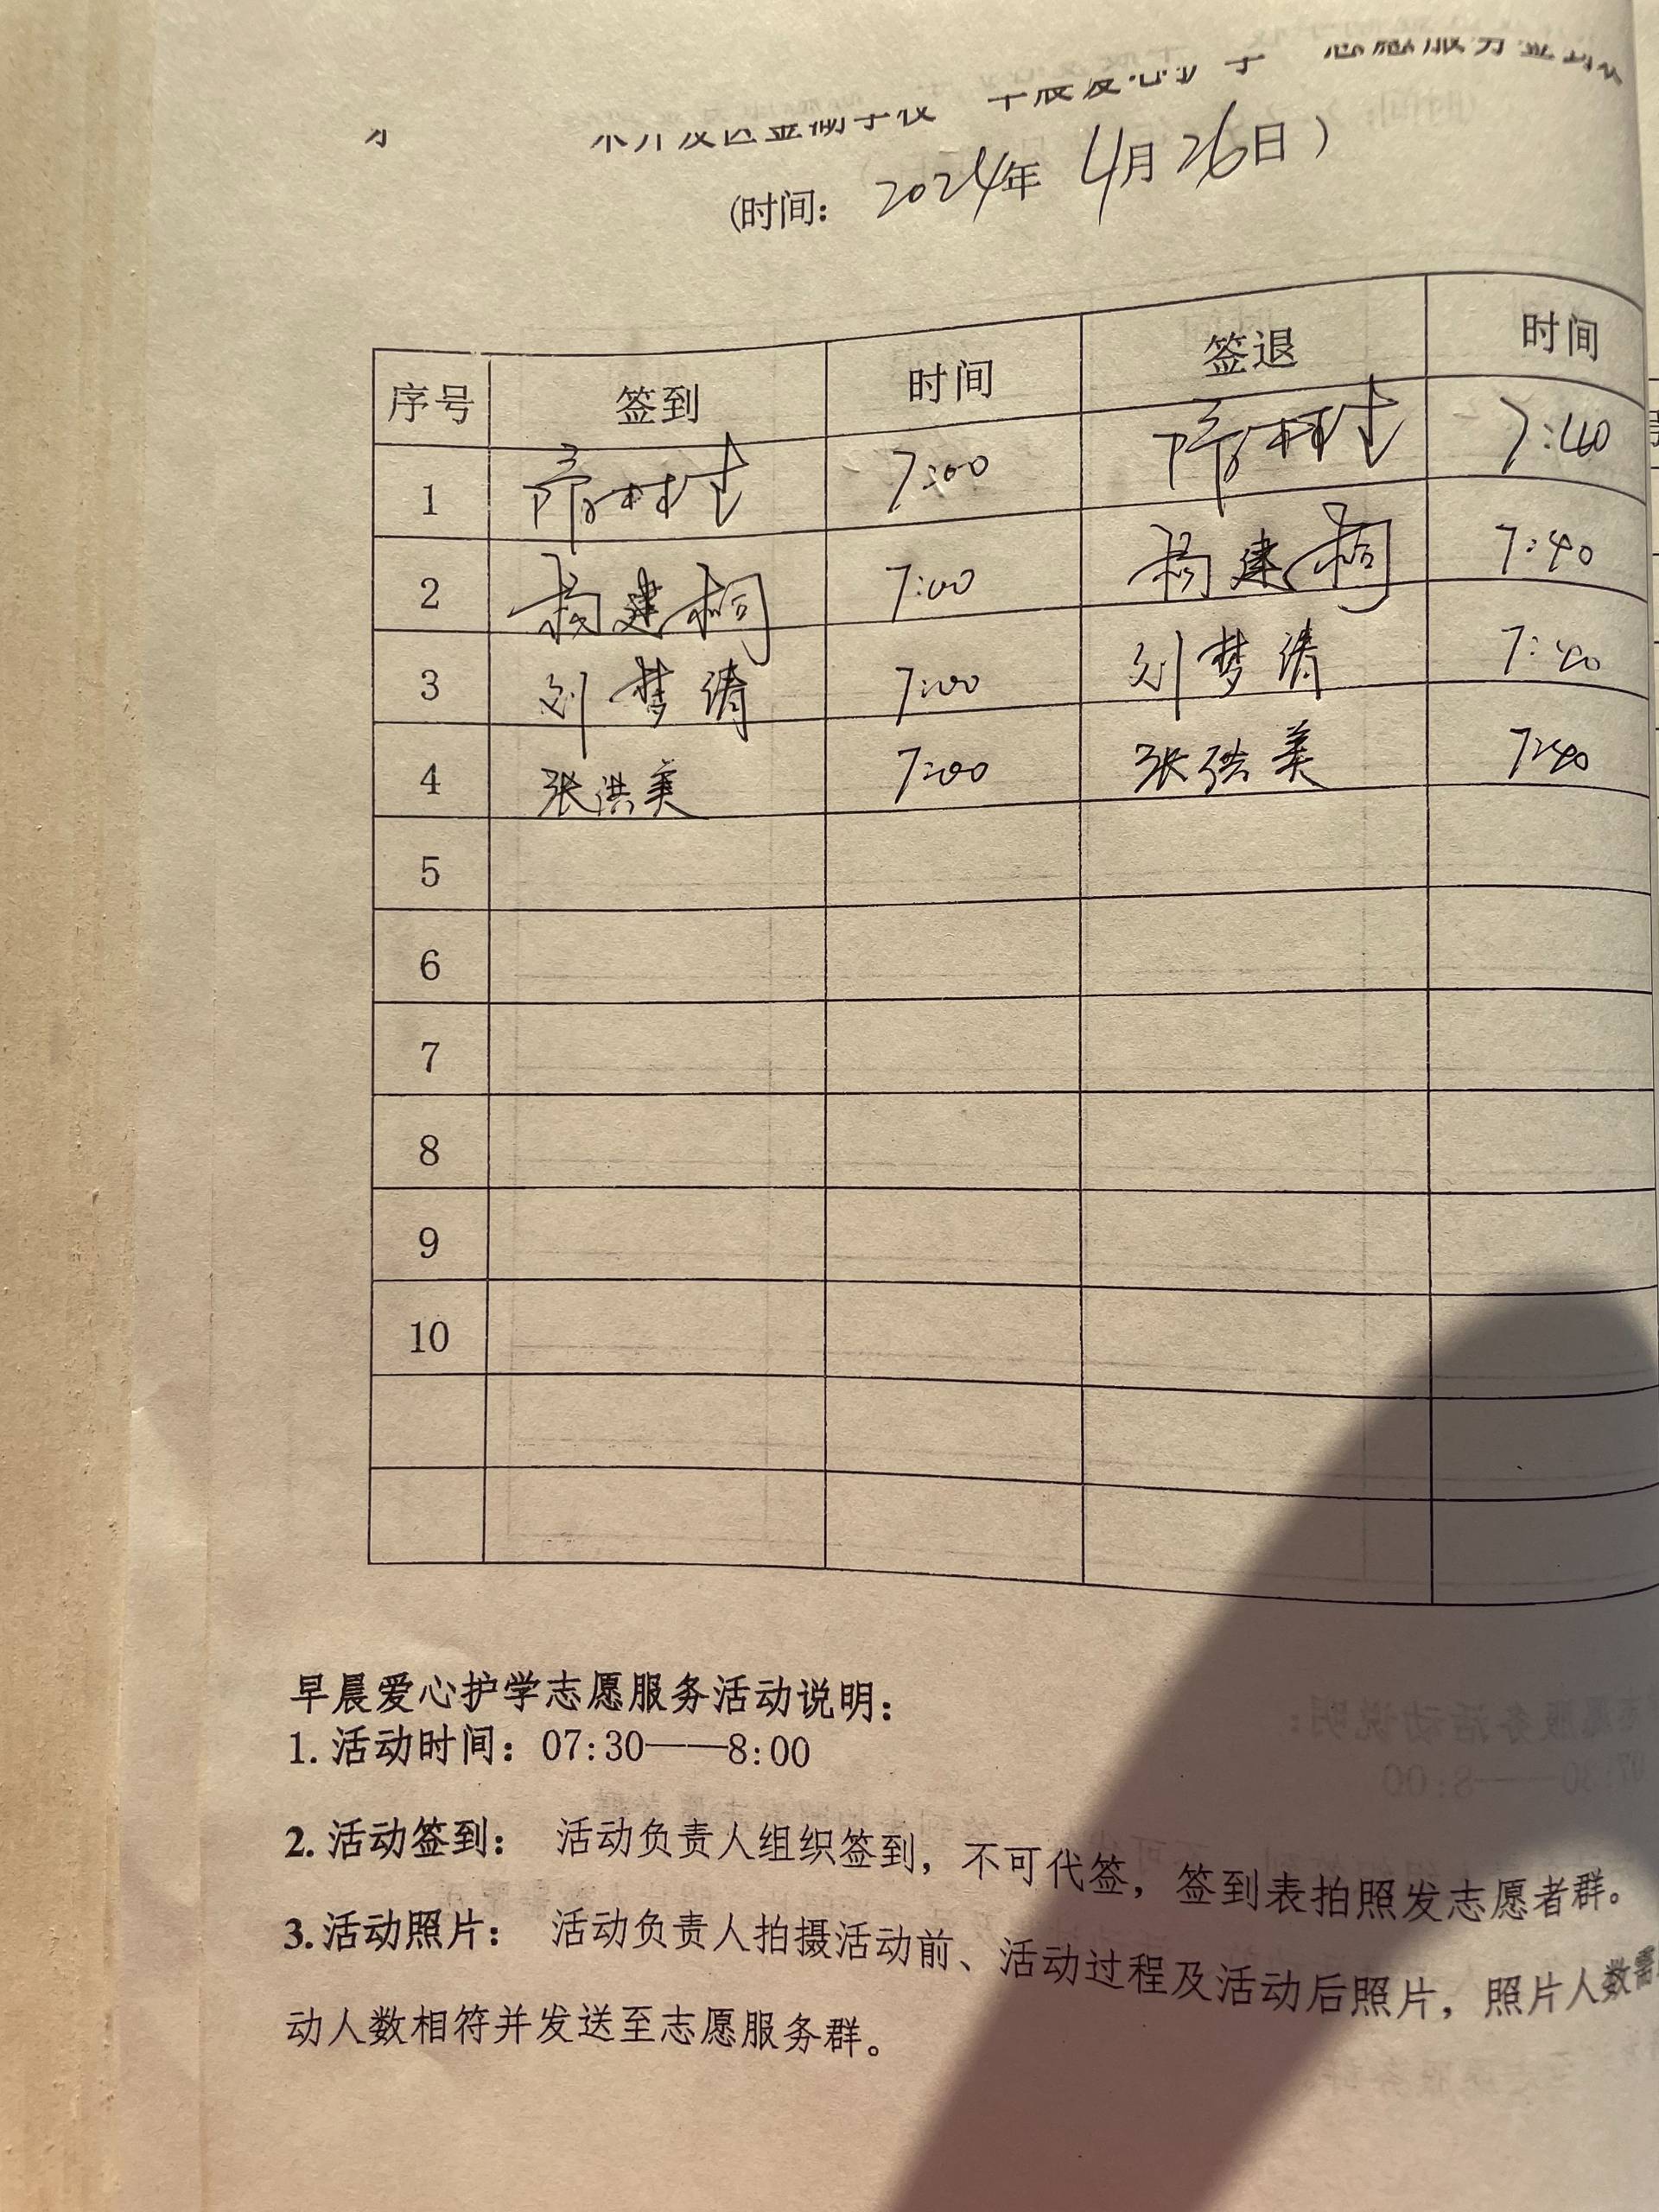 术开发区金湖学校“早晨爱心护学”志愿服务签到表
(时间: 2024年 4月26日)
序号 签到 时间 签退 时间
1 7:00 7:40
2 建桐 7:00 建桐 7:40
3 刘梦清 7:00 刘梦清 7:40
4 张洪美 7:00 张洪美 7:40
5
6
7
8
9
10
早晨爱心护学志愿服务活动说明:
1. 活动时间: 07:30——8:00
2. 活动签到: 活动负责人组织签到, 不可代签, 签到表拍照发志愿者群。
3. 活动照片: 活动负责人拍摄活动前、活动过程及活动后照片, 照片人数需
动人数相符并发送至志愿服务群。